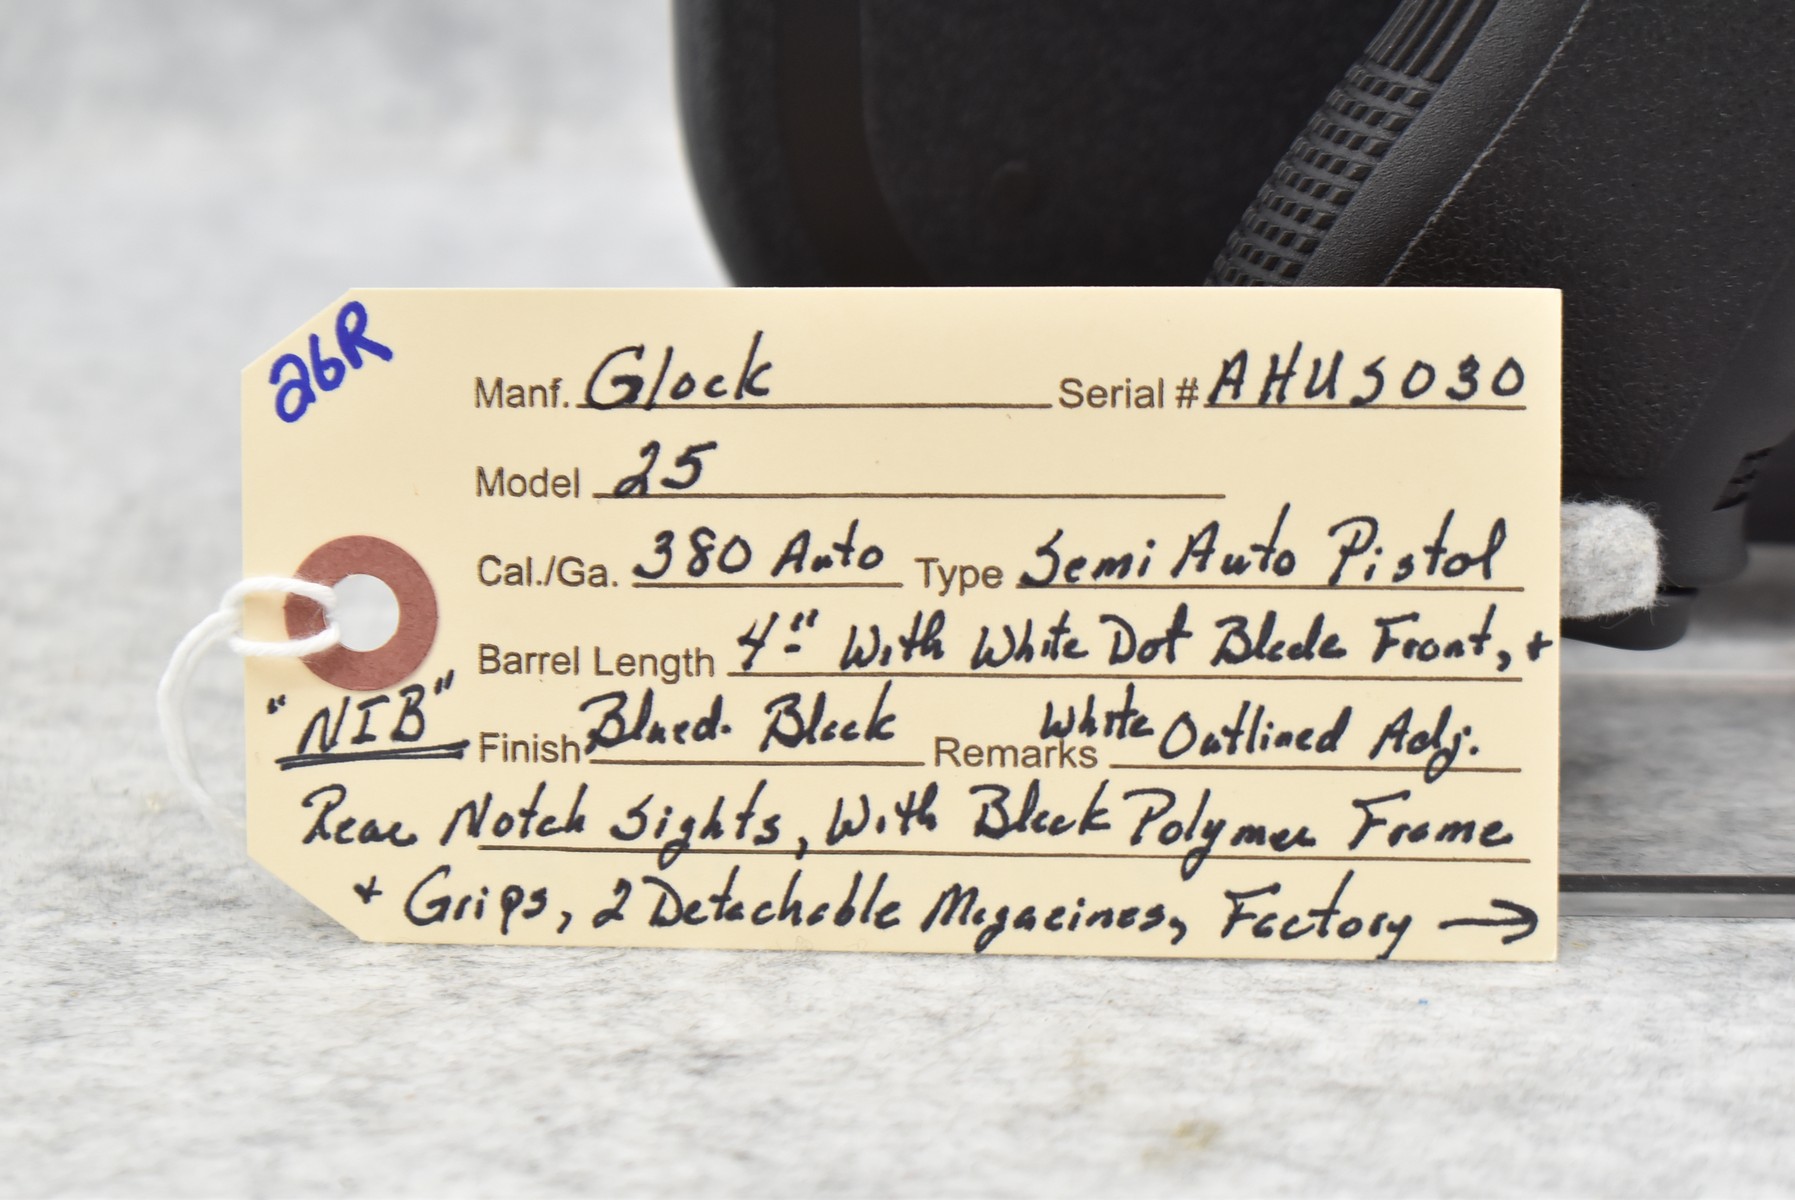 26R
Manf. Glock Serial # AHUS030
Model 25
Cal./Ga. 380 Auto Type Semi Auto Pistol
Barrel Length 4" With White Dot Blade Front, +
"NIB" Finish Blued. Black Remarks White Outlined Adj.
Rear Notch Sights, With Black Polymer Frame
+ Grips, 2 Detachable Magazines, Factory →